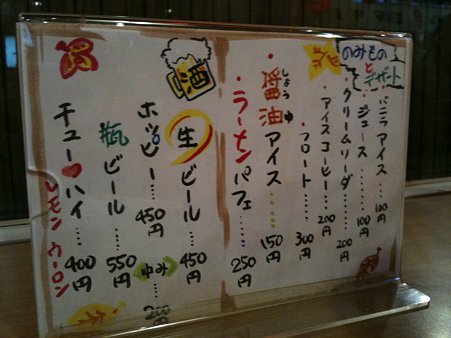 のみもの
と
デザート
バニラアイス……100円
ジュース……100円
クリームソーダ……200円
アイスコーヒー…200円
・フロート……300円
・醤油アイス……150円
しょうゆ
・ラーメンパフェ……250円
酒
生ビール……450円
ホッピー……450円
ゆみ…200円
瓶ビール……550円
チュー♥ハイ……400円
レモン ウーロン